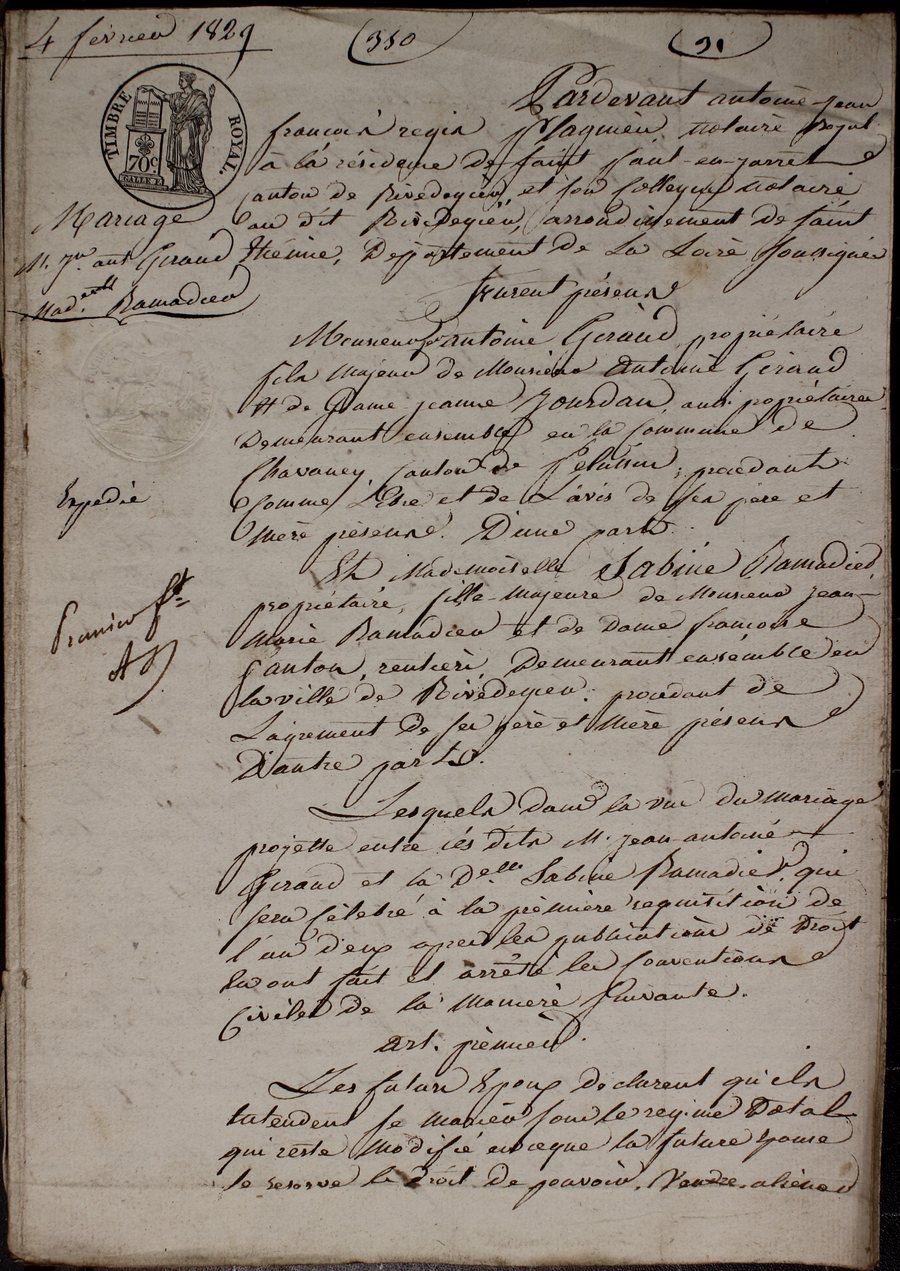 4 février 1829
(350)
(31)
TIMBRE ROYAL
70c.
Mariage
M. Jn. ant Giraud
Mad.elle Ramadier
Expedié
Premier ft
Pardevant antoine-jean
francois regis notaire royal
à la résidence de saint paul-en-jarret
canton de Rivedegier, et son collegue notaire
au dit Rivedegier, arrondissement de saint
Etienne, Département de la Loire soussignés
furent présens
Monsieur jn antoine Giraud, propriétaire
fils majeur de Monsieur antoine Giraud
et de Dame jeanne Jourdan, aussi propriétaires
Demeurant ensemble en la Commune de
Chavaney canton de Pelussin, procedant
Comme Libre et de L'avis de ses père et
mère présens. D'une part.
Et Mademoiselle Sabine Ramadier
propriétaire, fille majeure de Monsieur jean-
marie Ramadier et de Dame francoise
Canton, rentiers, Demeurant ensemble en
la ville de Rivedegier, procedant de
L'agrement de ses père et mère présens
D'autre part.
Lesquels dans la vue du mariage
projetté entre les dits M. jean-antoine
Giraud et la Delle Sabine Ramadier, qui
sera célebré à la première requisition de
l'un d'eux apres les publications de Droit
en ont fait et arrêté les Conventions
Civiles de la maniere suivante.
art. premier.
Les futurs Epoux declarent qu'ils
entendent se marier sous le regime Dotal
qui reste modifié en ce que la future Epouse
se reserve le Droit de pouvoir, Vendre, aliener